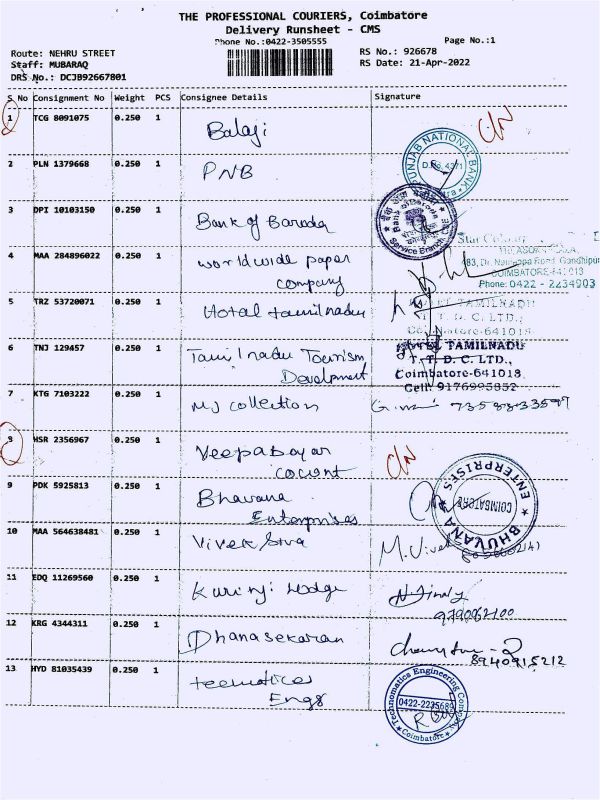 THE PROFESSIONAL COURIERS, Coimbatore
Delivery Runsheet - CMS
Phone No.:0422-3505555
Page No.:1
Route: NEHRU STREET
RS No.: 926678
Staff: MUBARAQ
RS Date: 21-Apr-2022
DRS No.: DCJB92667801
S No Consignment No Weight PCS Consignee Details Signature
1 TCG 8091075 0.250 1 Balaji C/N
2 PLN 1379668 0.250 1 PNB
PUNJAB NATIONAL BANK
3 DPI 10103150 0.250 1 Bank of Baroda
Bank of Baroda
Service Branch
4 MAA 284896022 0.250 1 worldwide paper
company
COIMBATORE-641013
Phone: 0422 - 2234903
5 TRZ 53720071 0.250 1 Hotal tamilnadu
TAMILNADU
T. T. D. C. LTD.,
Coimbatore-641018
6 TNJ 129457 0.250 1 Tamil nadu Tourism
Development
HOTEL TAMILNADU
T. T. D. C. LTD.,
Coimbatore-641018.
Cell: 9176995852
7 KTG 7103222 0.250 1 MJ collection
8 HSR 2356967 0.250 1 Veepabayar
C/N
9 PDK 5925813 0.250 1 Bhavana
Enterprises
BHUVANA ENTERPRISES
COIMBATORE
10 MAA 564638481 0.250 1 Vivek Siva
M. Vivek
11 EDQ 11269560 0.250 1 Kurinji Lodge
9790062100
12 KRG 4344311 0.250 1 Dhanasekaran
8940915212
13 HYD 81035439 0.250 1 teematices
Engg
Technomatics Engineering
0422-2235689
Coimbatore